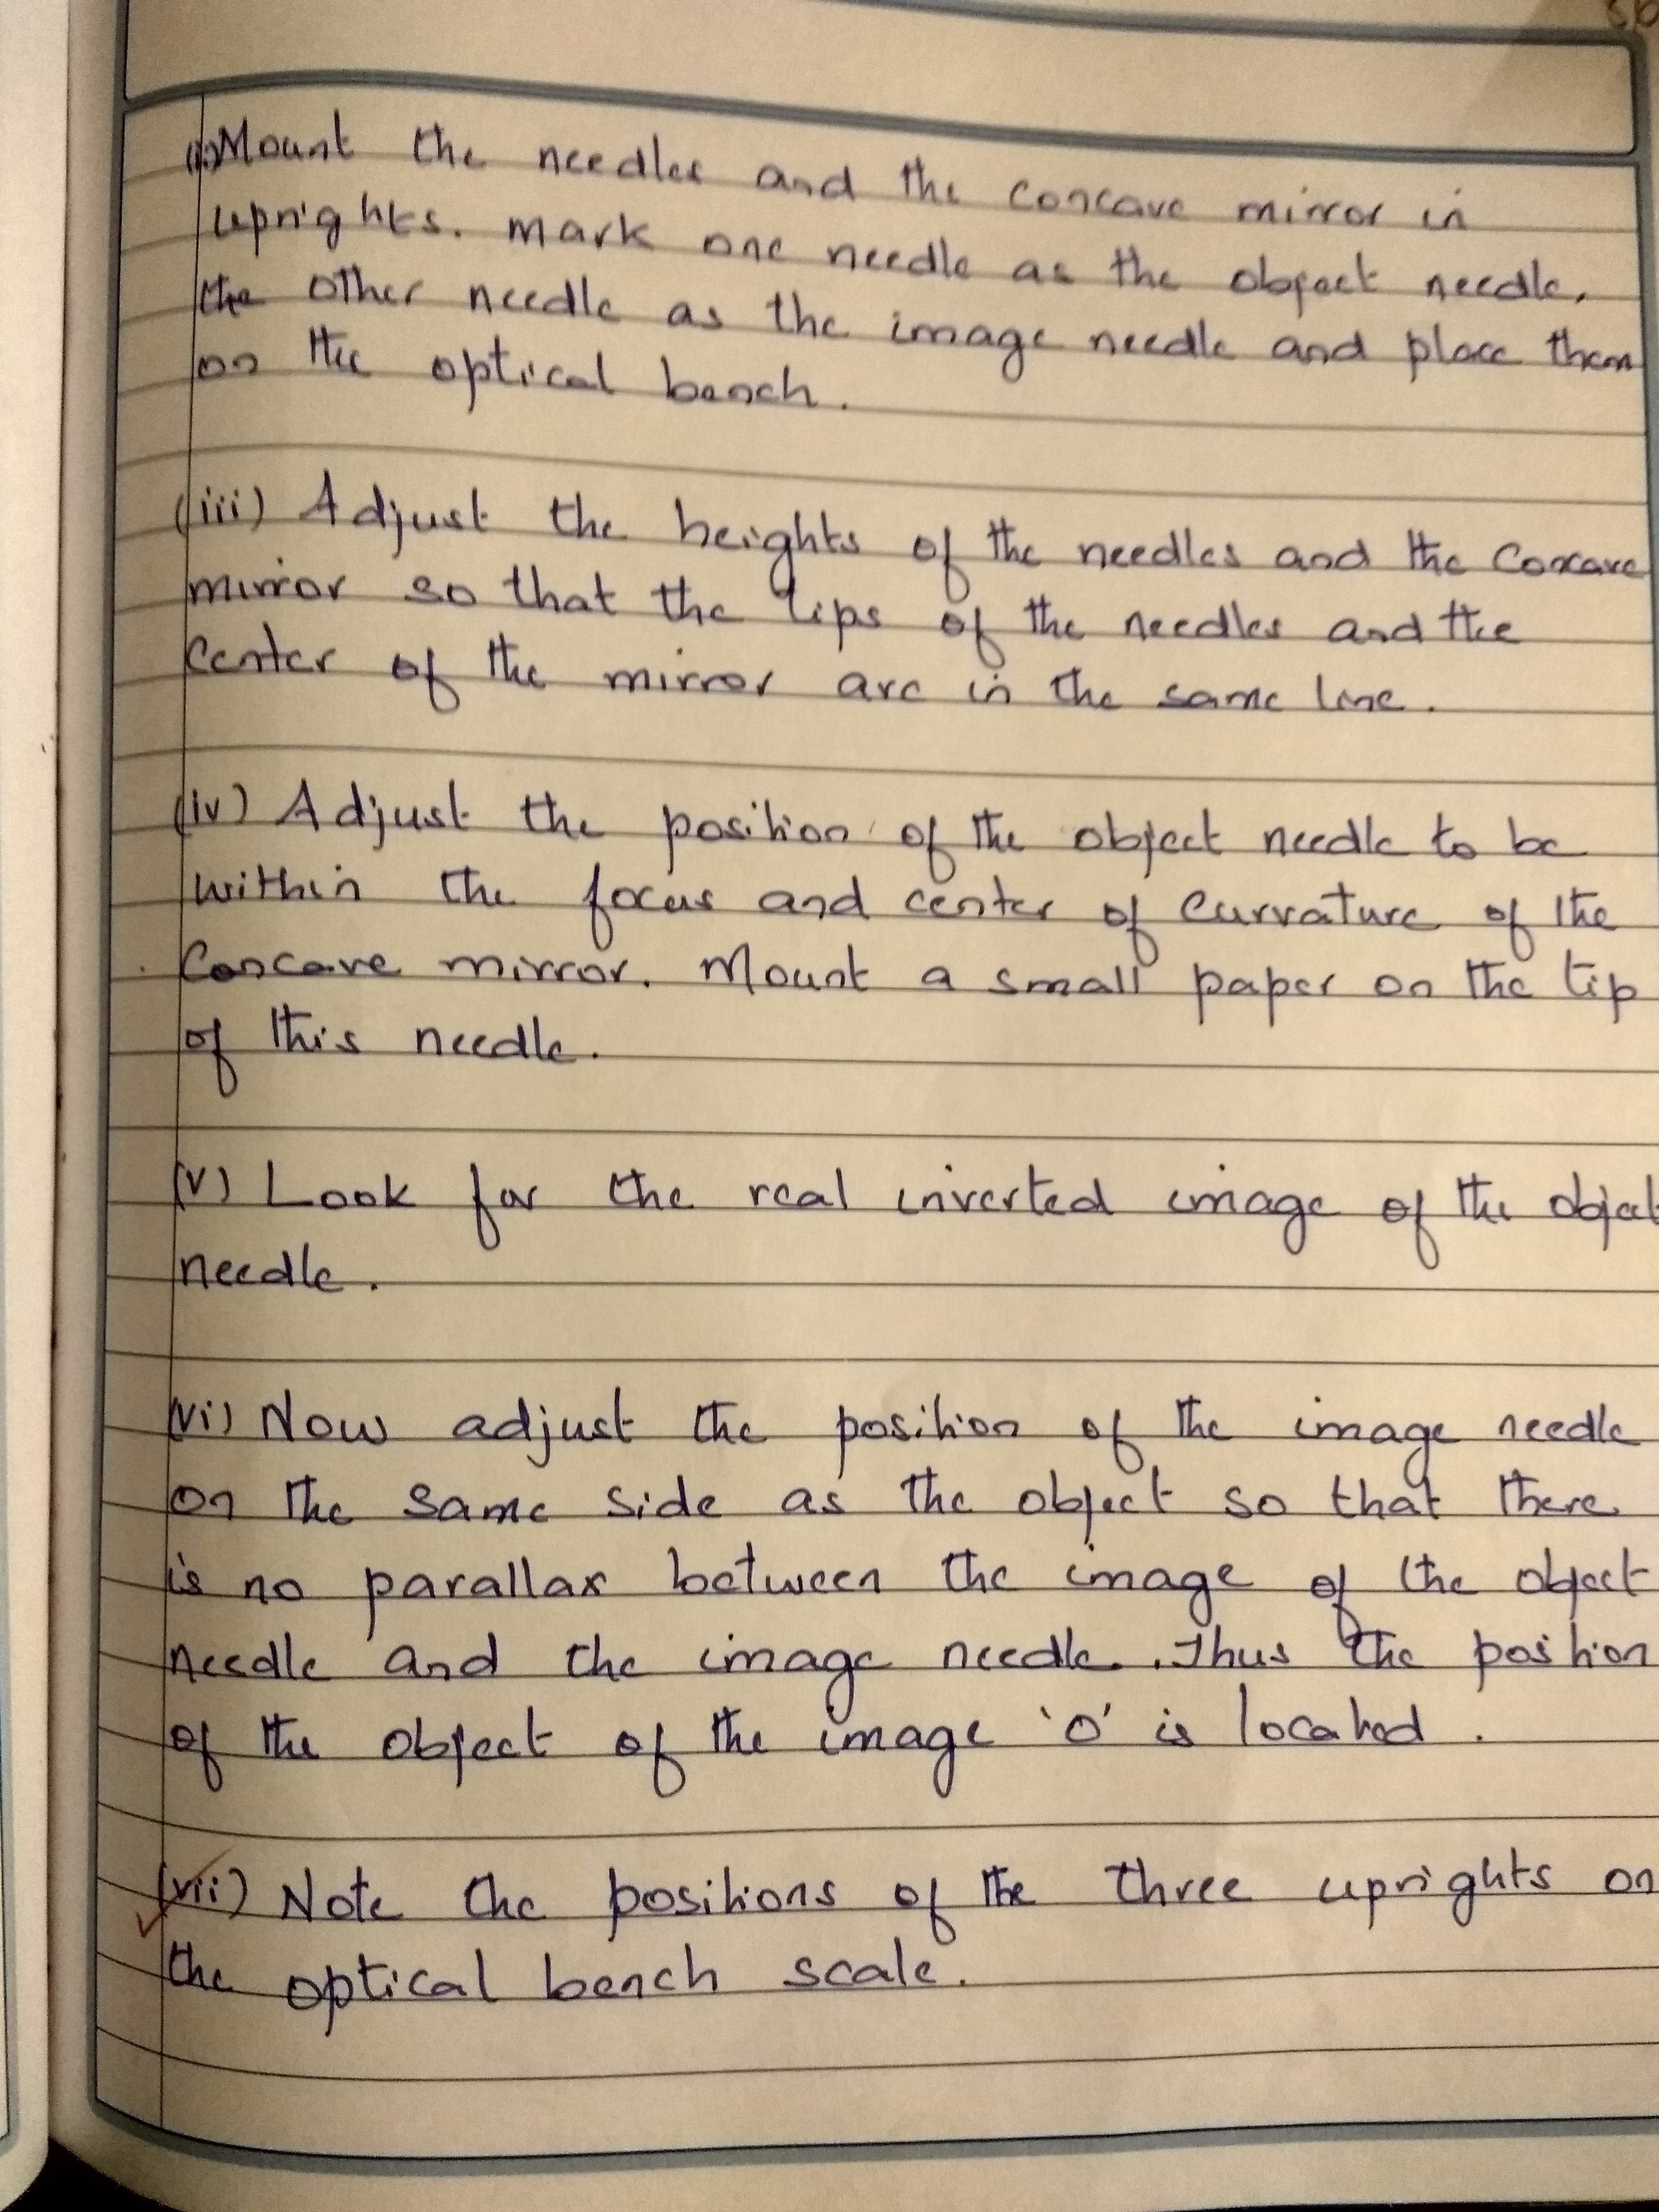 (ii) Mount the needles and the concave mirror in
uprights. Mark one needle as the object needle,
the other needle as the image needle and place them
on the optical bench.
(iii) Adjust the heights of the needles and the concave
mirror so that the tips of the needles and the
center of the mirror are in the same line.
(iv) Adjust the position of the object needle to be
within the focus and center of curvature of the
Concave mirror. Mount a small paper on the tip
of this needle.
(v) Look for the real inverted image of the object
needle.
(vi) Now adjust the position of the image needle
on the same side as the object so that there
is no parallax between the image of the object
needle and the image needle. Thus the position
of the object of the image 'O' is located.
(vii) Note the positions of the three uprights on
the optical bench scale.